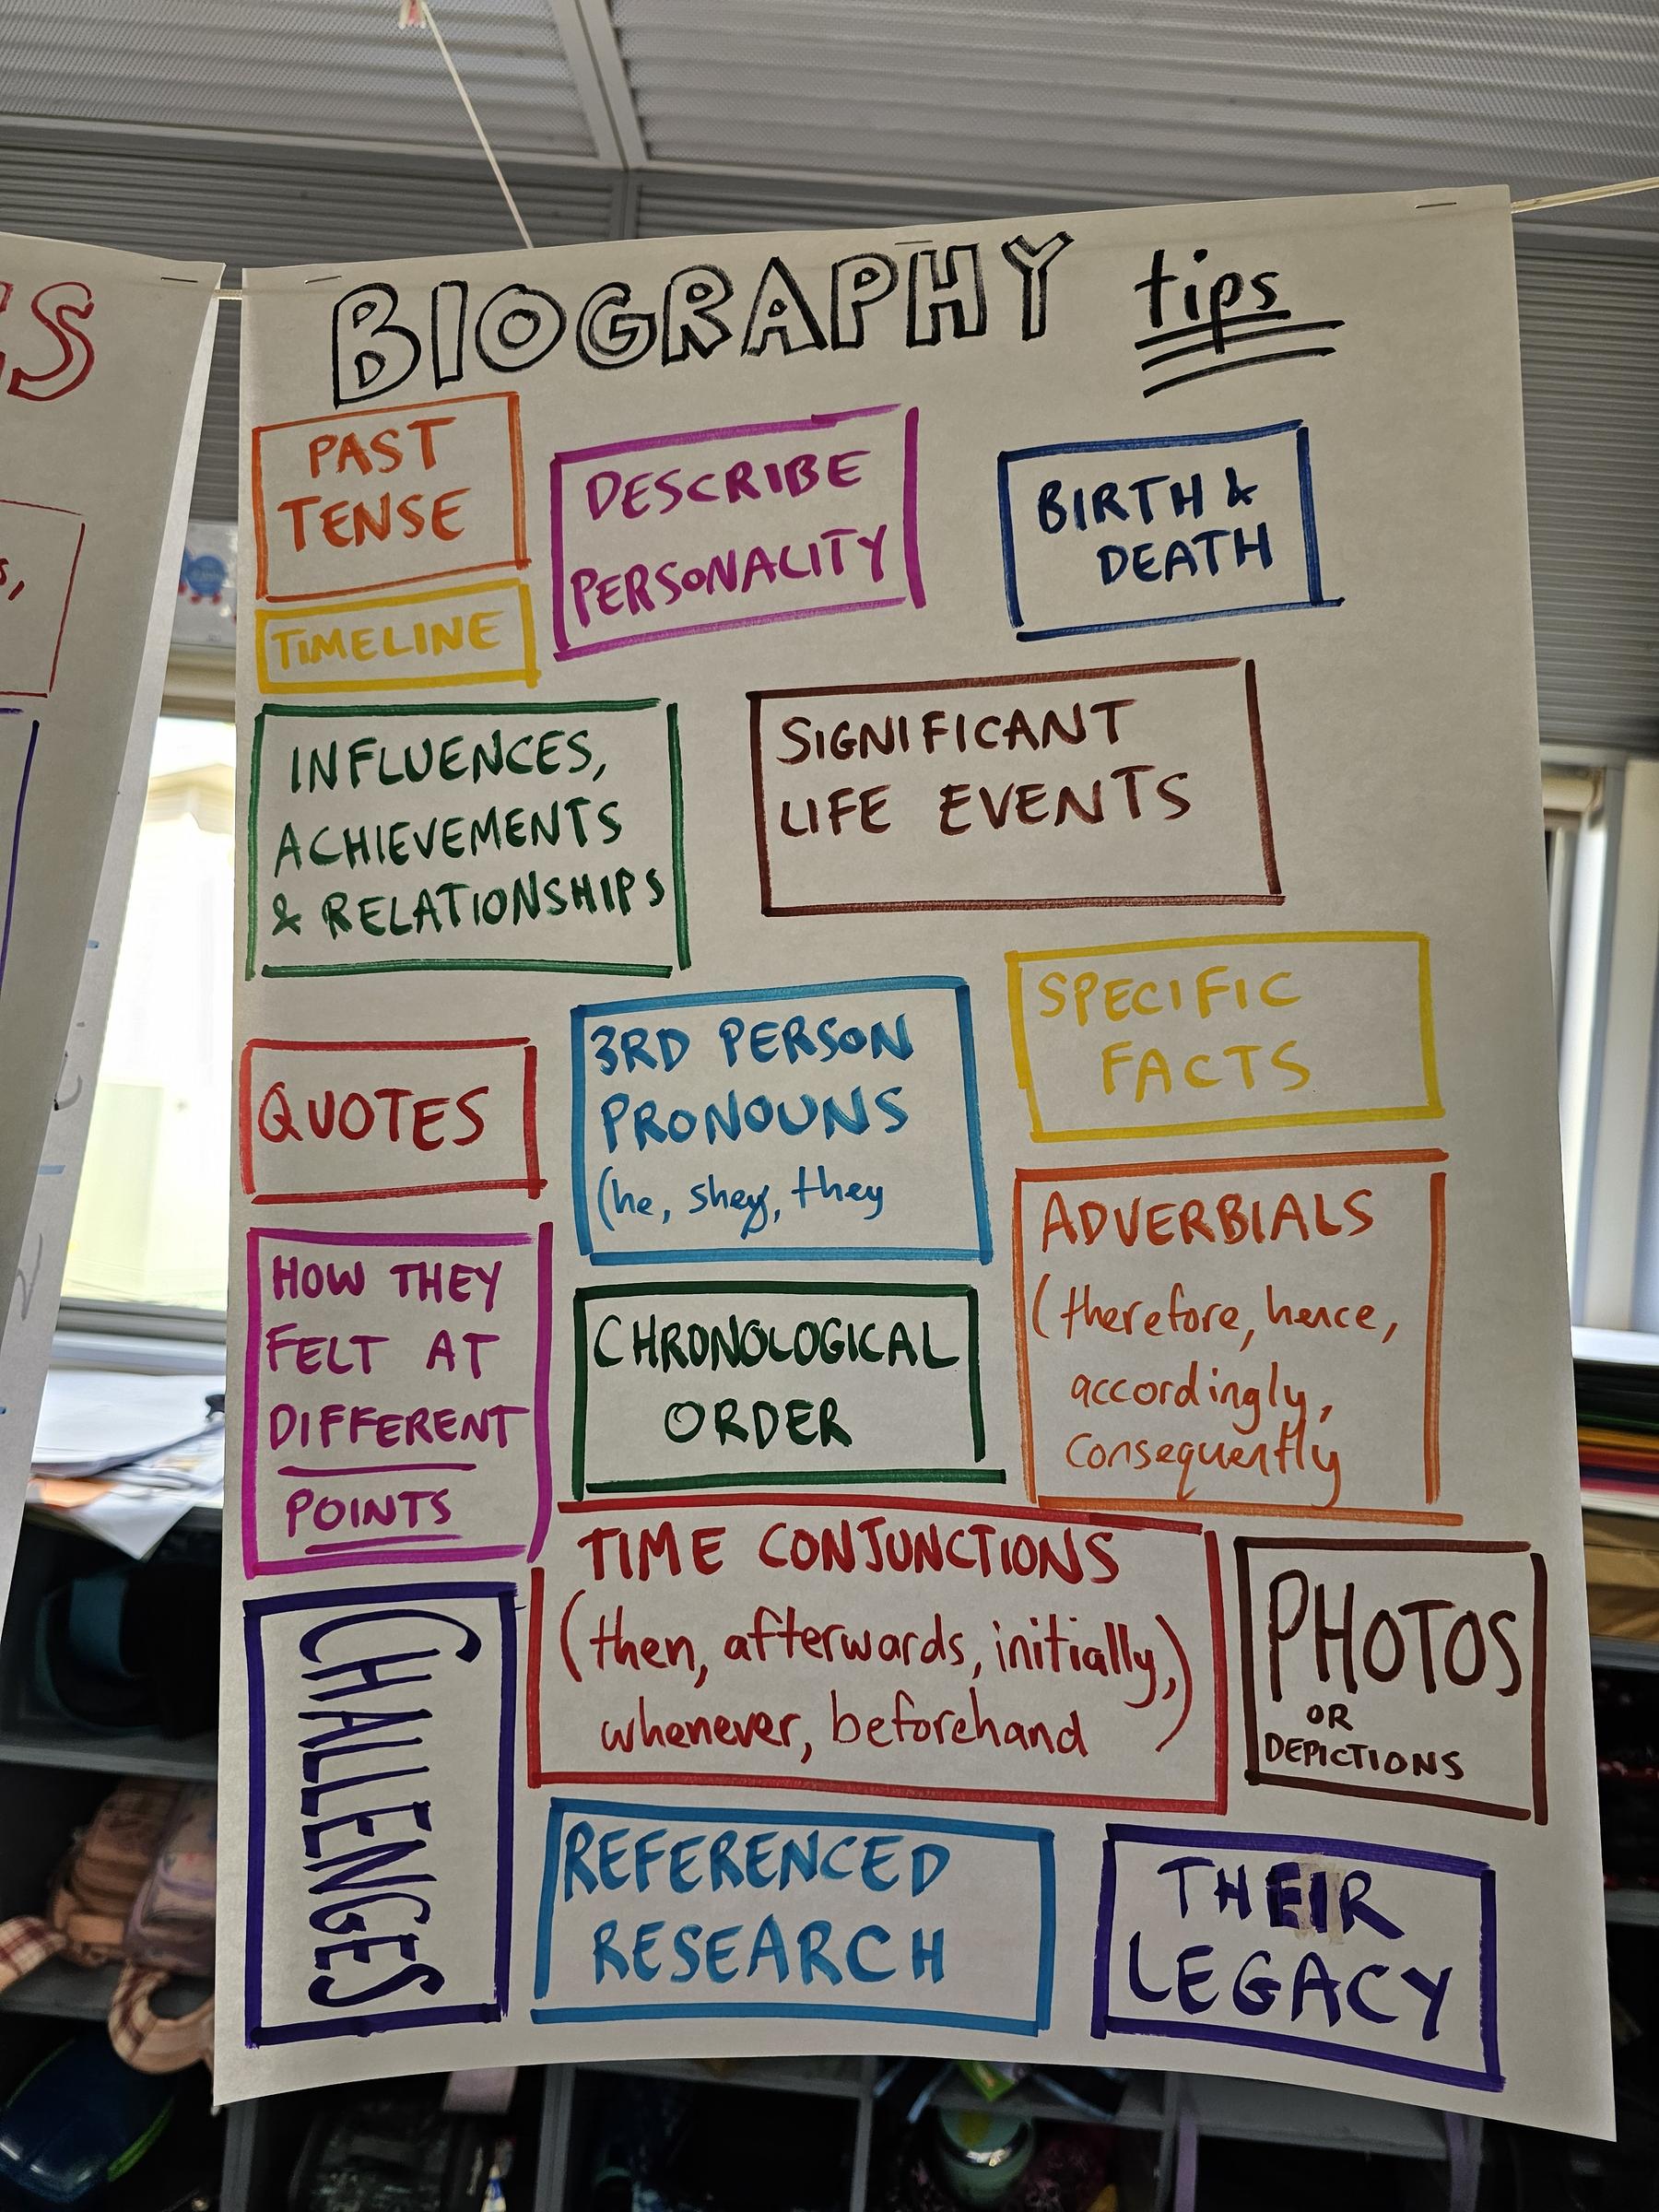 BIOGRAPHY tips
PAST
TENSE
DESCRIBE
PERSONALITY
BIRTH &
DEATH
TIMELINE
INFLUENCES,
ACHIEVEMENTS
& RELATIONSHIPS
SIGNIFICANT
LIFE EVENTS
QUOTES
3RD PERSON
PRONOUNS
(he, she, they
SPECIFIC
FACTS
HOW THEY
FELT AT
DIFFERENT
POINTS
CHRONOLOGICAL
ORDER
ADVERBIALS
(therefore, hence,
accordingly,
consequently
TIME CONJUNCTIONS
(then, afterwards, initially,)
whenever, beforehand
PHOTOS
OR
DEPICTIONS
CHALLENGES
REFERENCED
RESEARCH
THEIR
LEGACY